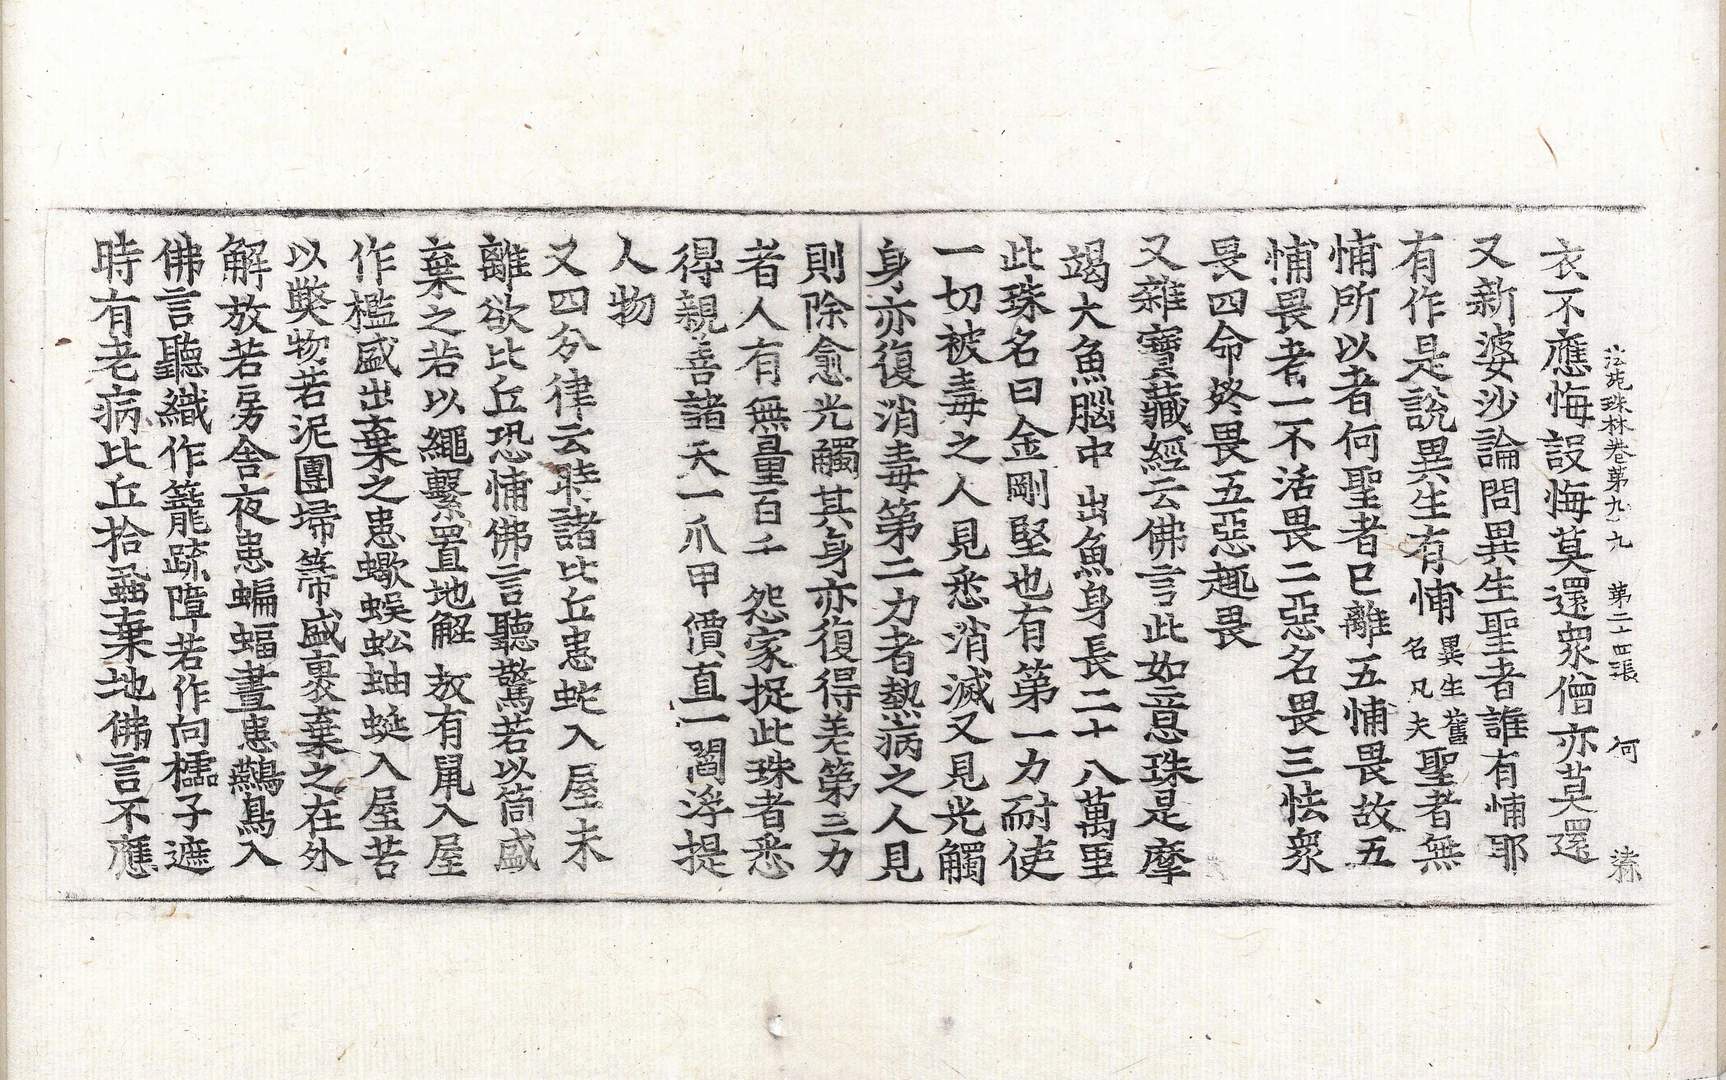 法苑珠林卷第九九 第二十四張 何
衣不應悔設悔莫還衆僧亦莫還
又新婆沙論問異生聖者誰有怖耶
有作是說異生有怖異生舊名凡夫聖者無
怖所以者何聖者已離五怖畏故五
怖畏者一不活畏二惡名畏三怯衆
畏四命終畏五惡趣畏
又雜寶藏經云佛言此如意珠是摩
竭大魚腦中出魚身長二十八萬里
此珠名曰金剛堅也有第一力耐使
一切被毒之人見悉消滅又見光觸
身亦復消毒第二力者熱病之人見
則除愈光觸其身亦復得差第三力
者人有無量百千怨家捉此珠者悉
得親善諸天一爪甲價直一閻浮提
人物
又四分律云時諸比丘患蛇入屋未
離欲比丘恐怖佛言聽驚若以筒盛
棄之若以繩繫置地解放有鼠入屋
作檻盛出棄之患蠍蜈蚣蚰蜒入屋若
以弊物若泥團埽箒盛裹棄之在外
解放若房舍夜患蝙蝠晝患鷰鳥入
佛言聽織作籠疏障若作向櫺子遮
時有老病比丘拾蝨棄地佛言不應